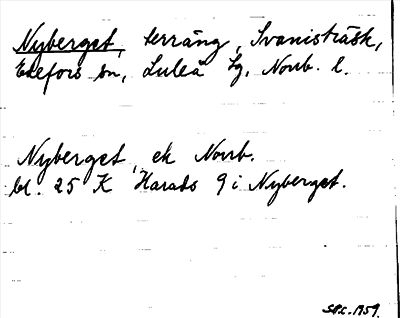 Nyberget, terräng, Svanisträsk,
Edefors sn, Luleå lg, Norrb. l.
Nyberget, ek Norrb.
bl. 25 K Harads 9 i Nyberget.
1959.